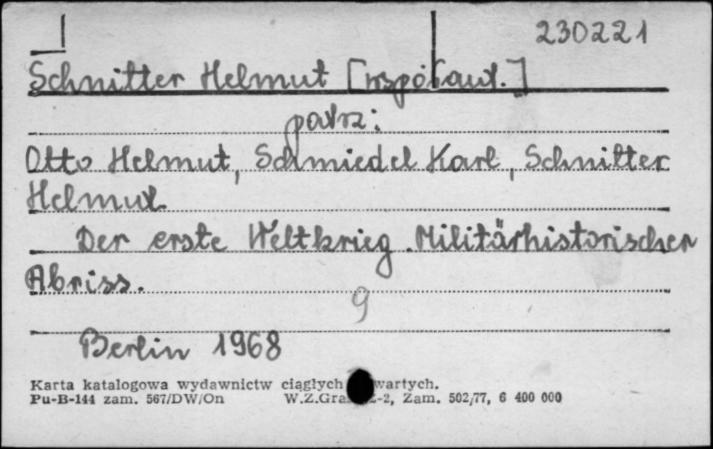 230221
Schnitter Helmut [współaut.]
patrz:
Otto Helmut, Schmiedel Karl, Schnitter
Helmut
Der erste Weltkrieg. Militärhistorischer
Abriss.
9
Berlin 1968
Karta katalogowa wydawnictw ciągłych wartych.
Pu-B-144 zam. 567/DW/On W.Z.Gra -2, Zam. 502/77, 6 400 000